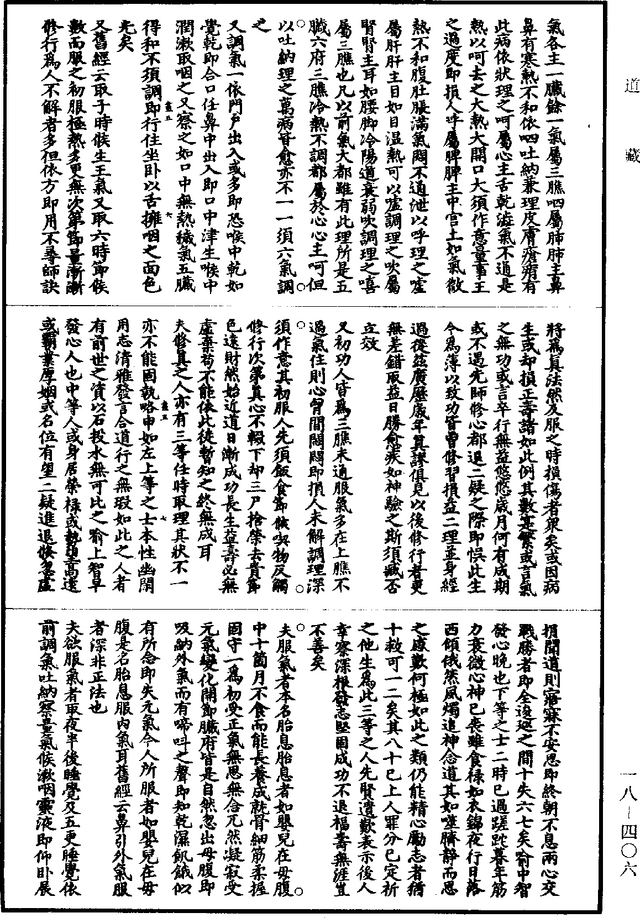 道藏
氣各主一臟餘一氣屬三膲呬屬肺肺主鼻
鼻有寒熱不和依呬吐納兼理皮膚瘡疥有
此病依狀理之呵屬心主舌舌乾澁氣不通是
熱以呵去之大熱大開口大須作意量事王
之過度即損人呼屬脾脾主中宮土如氣微
熱不和腹肚脹滿氣悶不通泄以呼理之噓
屬肝肝主目如目溫熱可以噓調理之吹屬
腎腎主耳如腰脚冷陽道衰弱吹調理之嘻
屬三膲也凡以前氣大都雖有此理所是五
臟六府三膲冷熱不調都屬於心心主呵但
以吐納理之萬病皆愈亦不一一須六氣調
之
又調氣一依門戶出入或多即恐喉中乾如
覺乾即合口任鼻中出入即口中津生喉中
潤漱取咽之又察之如口中無熱穢氣五臟
得和不須調即行往坐卧以舌攤咽之面色
光矣
又舊經云取子時候生王氣又取六時節候
數而服之初服極熱多更無次第節量漸漸
修行為人不解者多但依方即用不尋師訣
將爲真法然及服之時損傷者衆矣或因病
生或却損正壽諸如此例其數寔繁或言氣
之無功或言卒行無益悠悠歲月何有成期
或不遇先師修心都退二疑之際即悞此生
今爲薄以致功皆曾修習損益二理並身經
過後兹廣歷歲年算謬俱見以後修行者更
無差錯取益日勝愈疾如神驗之斯須臧否
立效
又初功人皆爲三膲未通服氣多在上膲不
過氣住則心胷間闊闊即損人未解調理深
須作意其初服人先須飯食節候喫物反觸
修行次第真心不輟下却三尸捨榮去貴節
色遠財然始近道日漸成功長生益壽必無
虛棄苟不能依此徒暫知之終無成耳
夫修真之人亦有三等任時取理其狀不一
亦不能固執略申如左上等之士本性幽閑
用志清雅發言合道行之無瑕如此之人者
有前世之資以石投水無可比之喻上智早
發心人也中等人或身居榮祿或勢望高遠
或覇業厚姻或名位有望二疑進退倏忽虛
捐聞道則寤寐不安思即終朝不息兩心交
戰勝者即全逡巡之間十失六七矣喻中智
發心晚也下等之士二時已過蹉跎暮年筋
力衰微心神已喪雖食祿如衣錦夜行日落
西傾俄然風燭追神念道其如噬臍静而思
之原歎何極如此之類仍能精心勵志者猶
十救可一二矣其八十已上人罪分已定祈
之他生爲此三等之人先賢遺歎表示後人
幸察深根發志堅固成功不退福壽無涯豈
不善矣
夫服氣者本名胎息胎息者如嬰兒在母腹
中十箇月不食而能長養成就骨細筋柔握
固守一爲初受正氣無思無念兀然凝寂受
元氣變化開節臟府皆是自然忽出母腹即
吸納外氣而有啼叫之聲即知乾濕飢餓似
有所念即失元氣今人所服者如嬰兒在母
腹是名胎息服內氣耳舊經云鼻引外氣服
者深非正法也
夫欲服氣者取夜半後睡覺及五更睡覺依
前調氣吐納察量氣候漱咽靈液即仰卧展
一八－四〇六